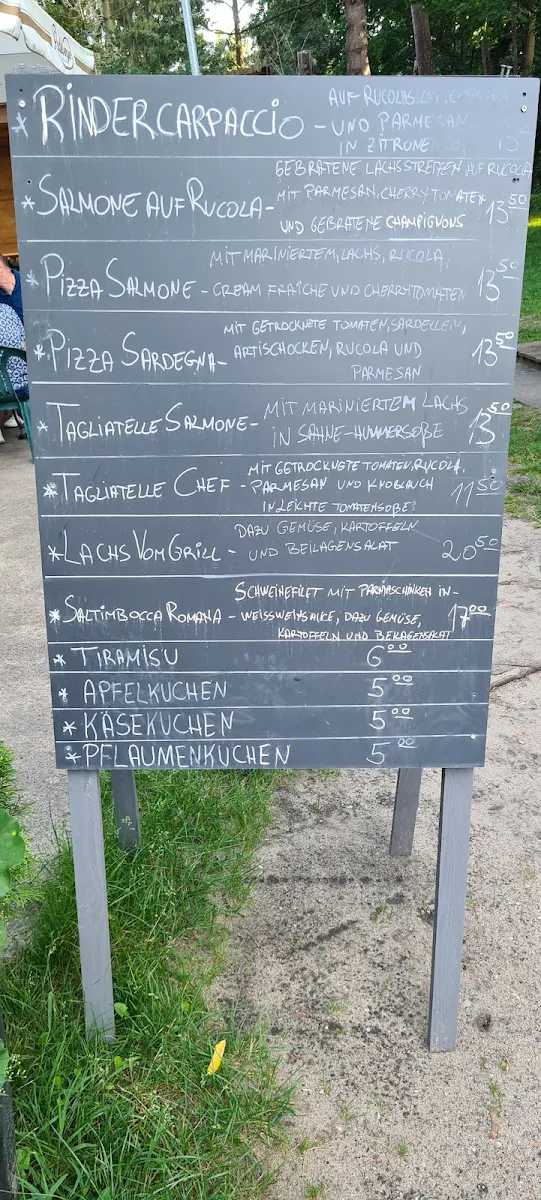 AUF RUCOLASALAT,
* RINDERCARPACCIO - UND PARMESAN
IN ZITRONE
GEBRATENE LACHSSTREIFEN AUF RUCOLA
* SALMONE AUF RUCOLA - MIT PARMESAN, CHERRY TOMATEN 13 50
UND GEBRATENE CHAMPIGNONS
MIT MARINIERTEM, LACHS, RUCOLA,
* PIZZA SALMONE - CREAM FRAÎCHE UND CHERRYTOMATEN 13 50
MIT GETROCKNETE TOMATEN, SARDELLEN,
* PIZZA SARDEGNA - ARTISCHOCKEN, RUCOLA UND 13 50
PARMESAN
MIT MARINIERTEM LACHS
* TAGLIATELLE SALMONE - IN SAHNE-HUMMERSOßE 13 50
MIT GETROCKNETE TOMATEN, RUCOLA,
* TAGLIATELLE CHEF - PARMESAN UND KNOBLAUCH 11 50
IN LEICHTE TOMATENSOßE
DAZU GEMÜSE, KARTOFFELN
* LACHS VOM GRILL - UND BEILAGENSALAT 20 50
SCHWEINEFILET MIT PARMASCHINKEN IN -
* SALTIMBOCCA ROMANA - WEISSWEINSAUCE, DAZU GEMÜSE, 17 00
KARTOFFELN UND BEILAGENSALAT
* TIRAMISU 6 00
* APFELKUCHEN 5 00
* KÄSEKUCHEN 5 00
* PFLAUMENKUCHEN 5 00